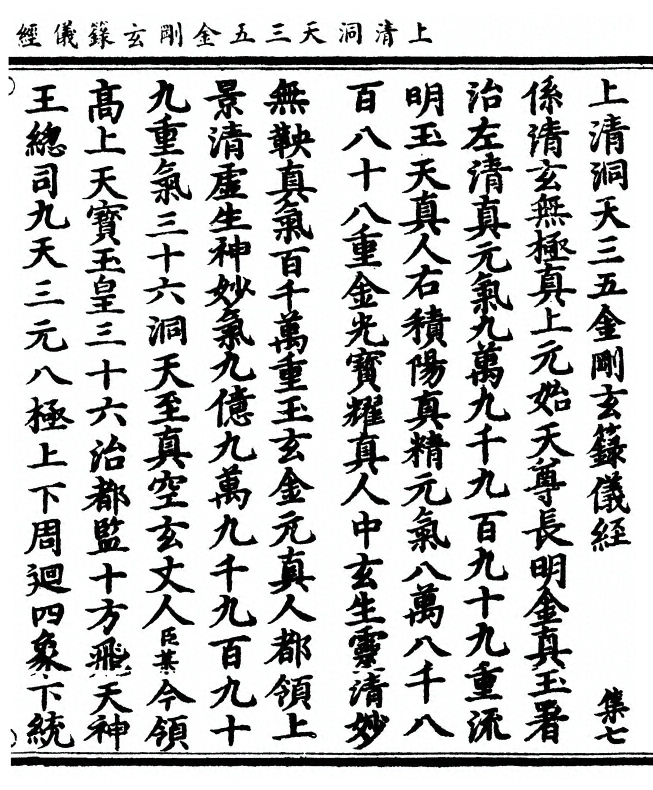 上清洞天三五金剛玄籙儀經
上清洞天三五金剛玄籙儀經 集七
係清玄無極真上元始天尊長明金真玉署
治左清真元氣九萬九千九百九十九重流
明玉天真人右積陽真精元氣八萬八千八
百八十八重金光寶耀真人中玄生靈清妙
無軮真氣百千萬重玉玄金元真人都領上
景清虛生神妙氣九億九萬九千九百九十
九重氣三十六洞天至真空玄丈人臣某今領
高上天寶玉皇三十六治都監十方飛天神
王總司九天三元八極上下周迴四象下統